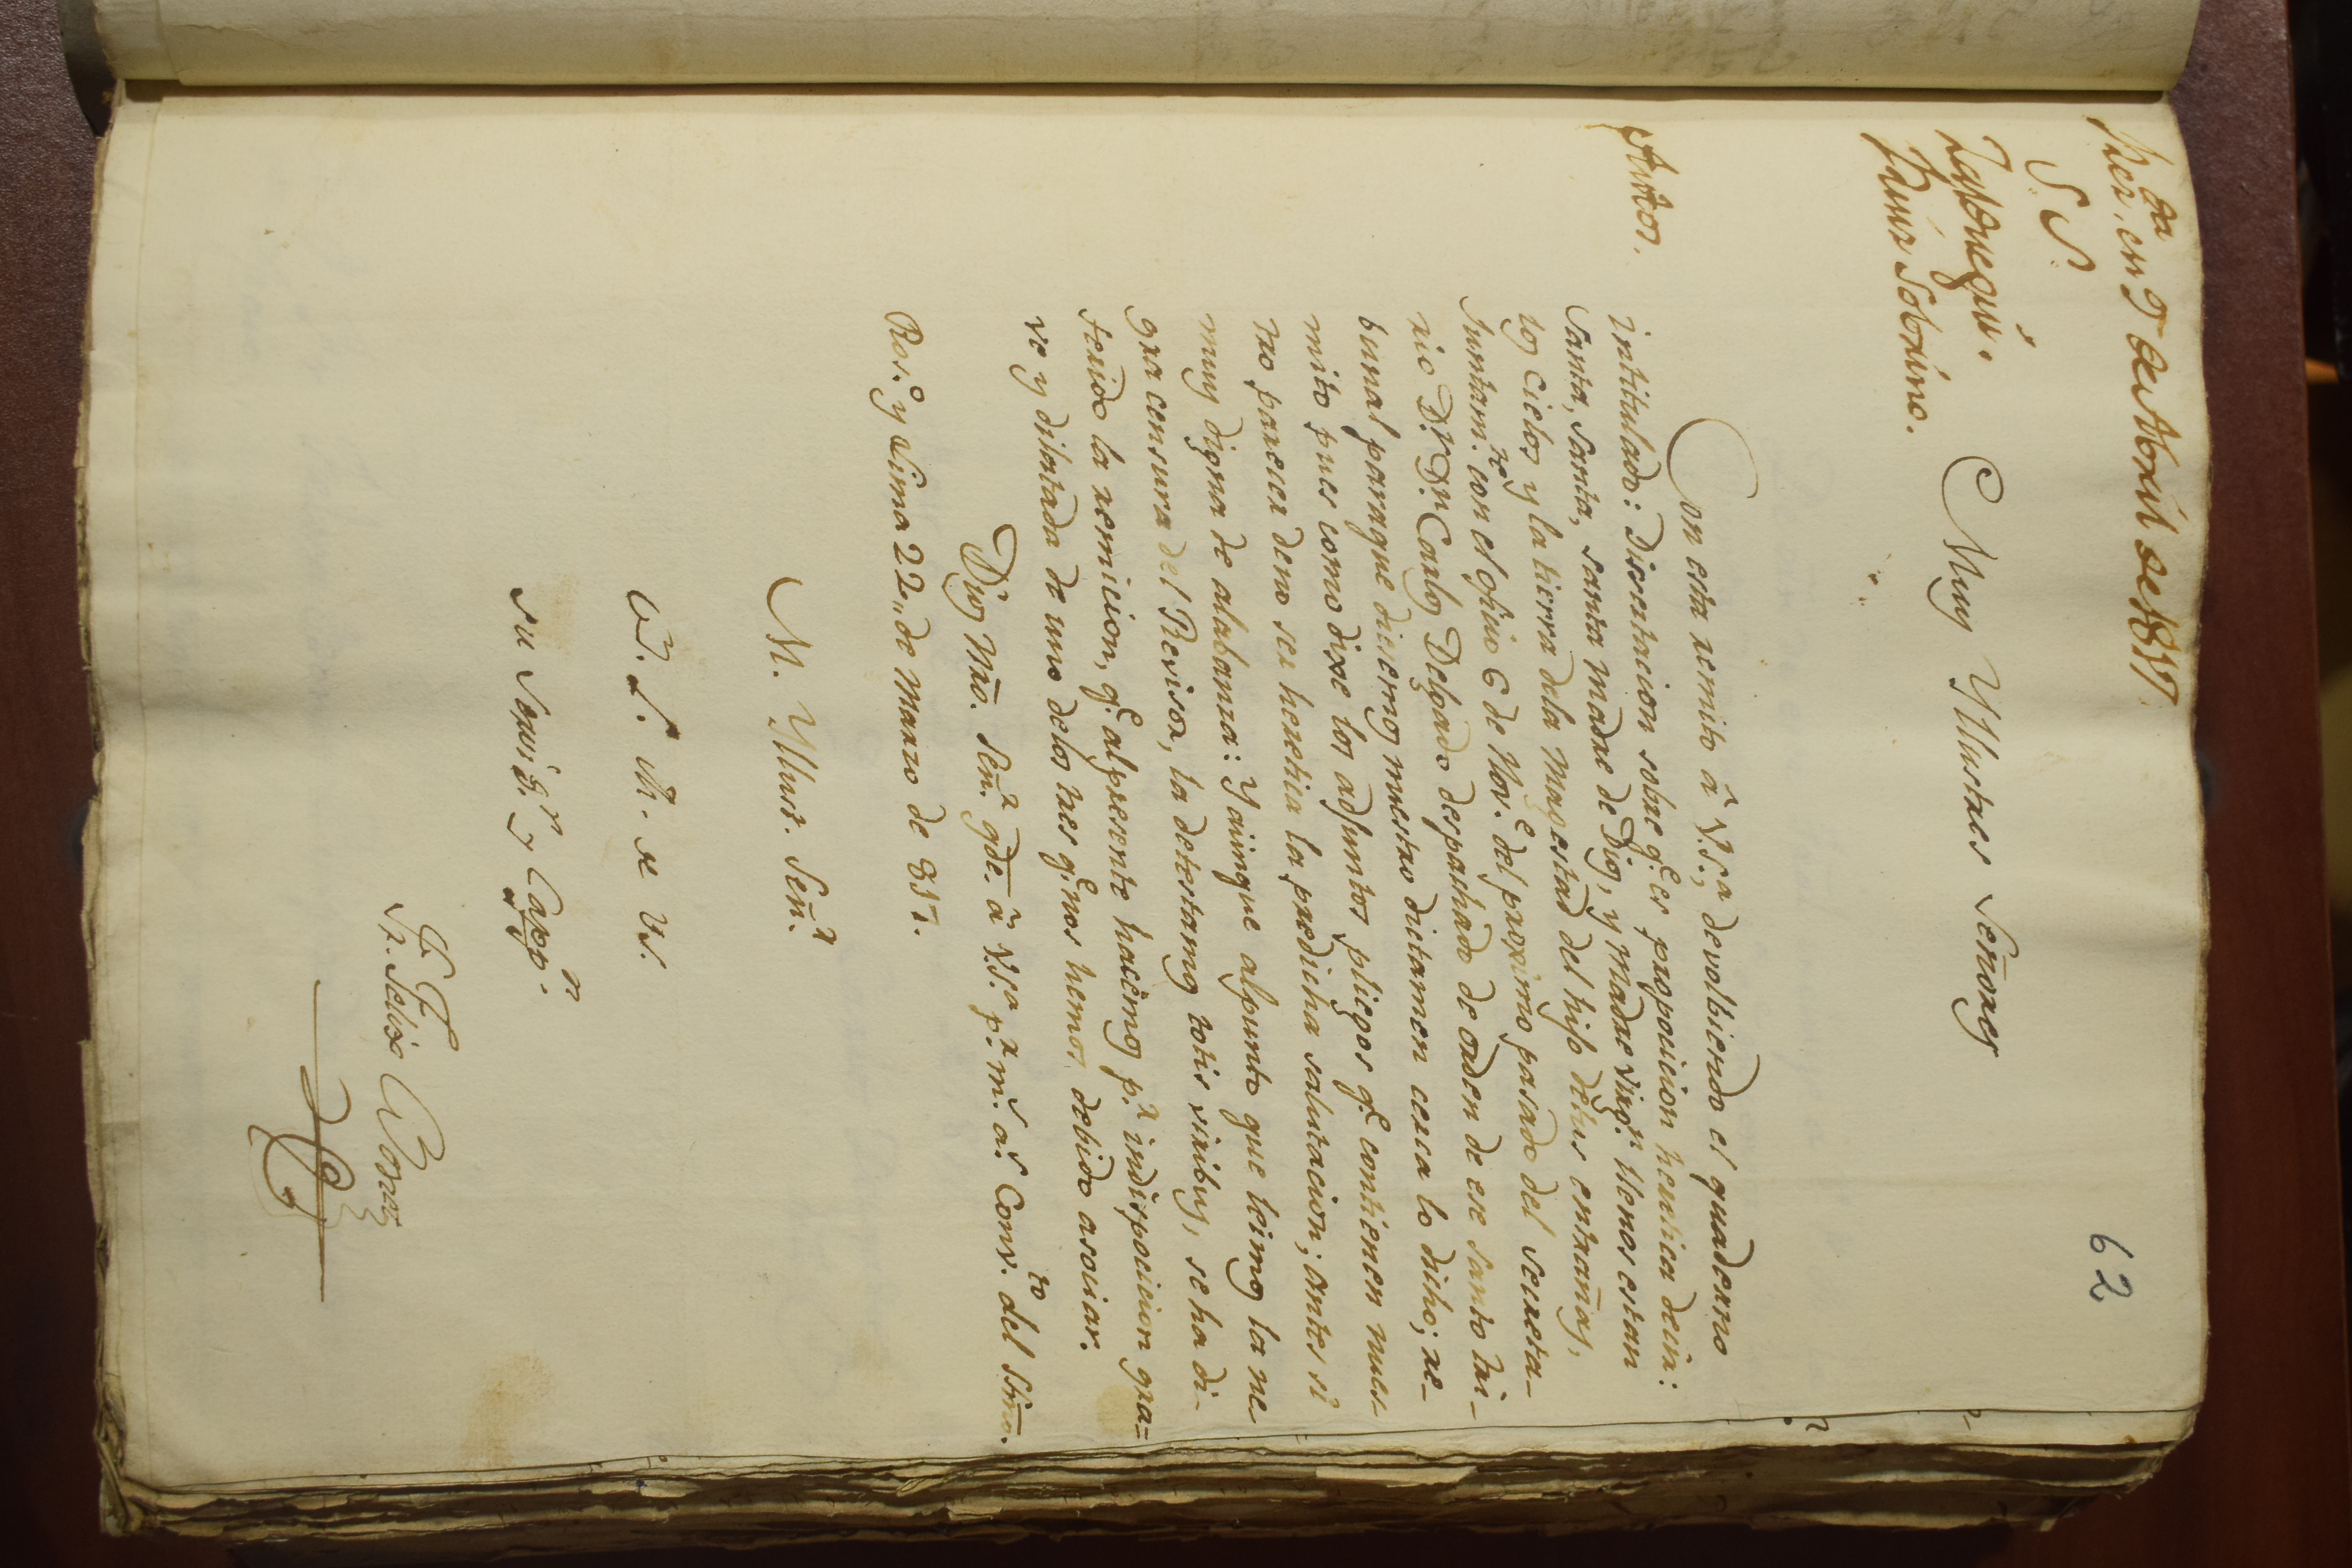 62
en 9 de Abril de 1817.
S. S.
Zalduegui.
Sobrino.
Muy Yllustres Señores
Con esta remito â V.S.ª, devolbiendo el quaderno
intitulado: Disertacion sobre q.e es proposicion heretica decir:
Santa, Santa, Santa Madre de Dios, y Madre Virg.n llenos estan
los Cielos y la tierra dela Magestad del hijo detus entrañas,
Juntam.te con el oficio 6 de Nov.e del proximo pasado del Secreta-
rio D.r D.n Carlos Delgado despachado de orden de ese Santo Tri-
bunal paraque diesemos nuestro dictamen cerca lo dicho; re-
mito pues como dixe los adjuntos pliegos q.e contienen nues-
tro parecer deno ser heretica la predicha salutacion; antes sî
muy digna de alabanza: Y aunque alpunto que leimos la ne-
gra censura del Revisor, la detestamos totis viribus, se ha di-
ferido la remicion, q.e alpresente hacemos p.r indisposicion gra=
ve y dilatada de uno delos tres q.e nos hemos debido asociar.
Dios Nrō. Señ.r gde. â V.S.ª p.r m.s a.s Conv.to del Ssmō.
Ros.o y Lima 22,, de Marzo de 817.
M. Yllust. Señ.r
B. L. M. de V.S.
su Servid.r y Capp.n
Fr. Felix Bonaz
Autos.